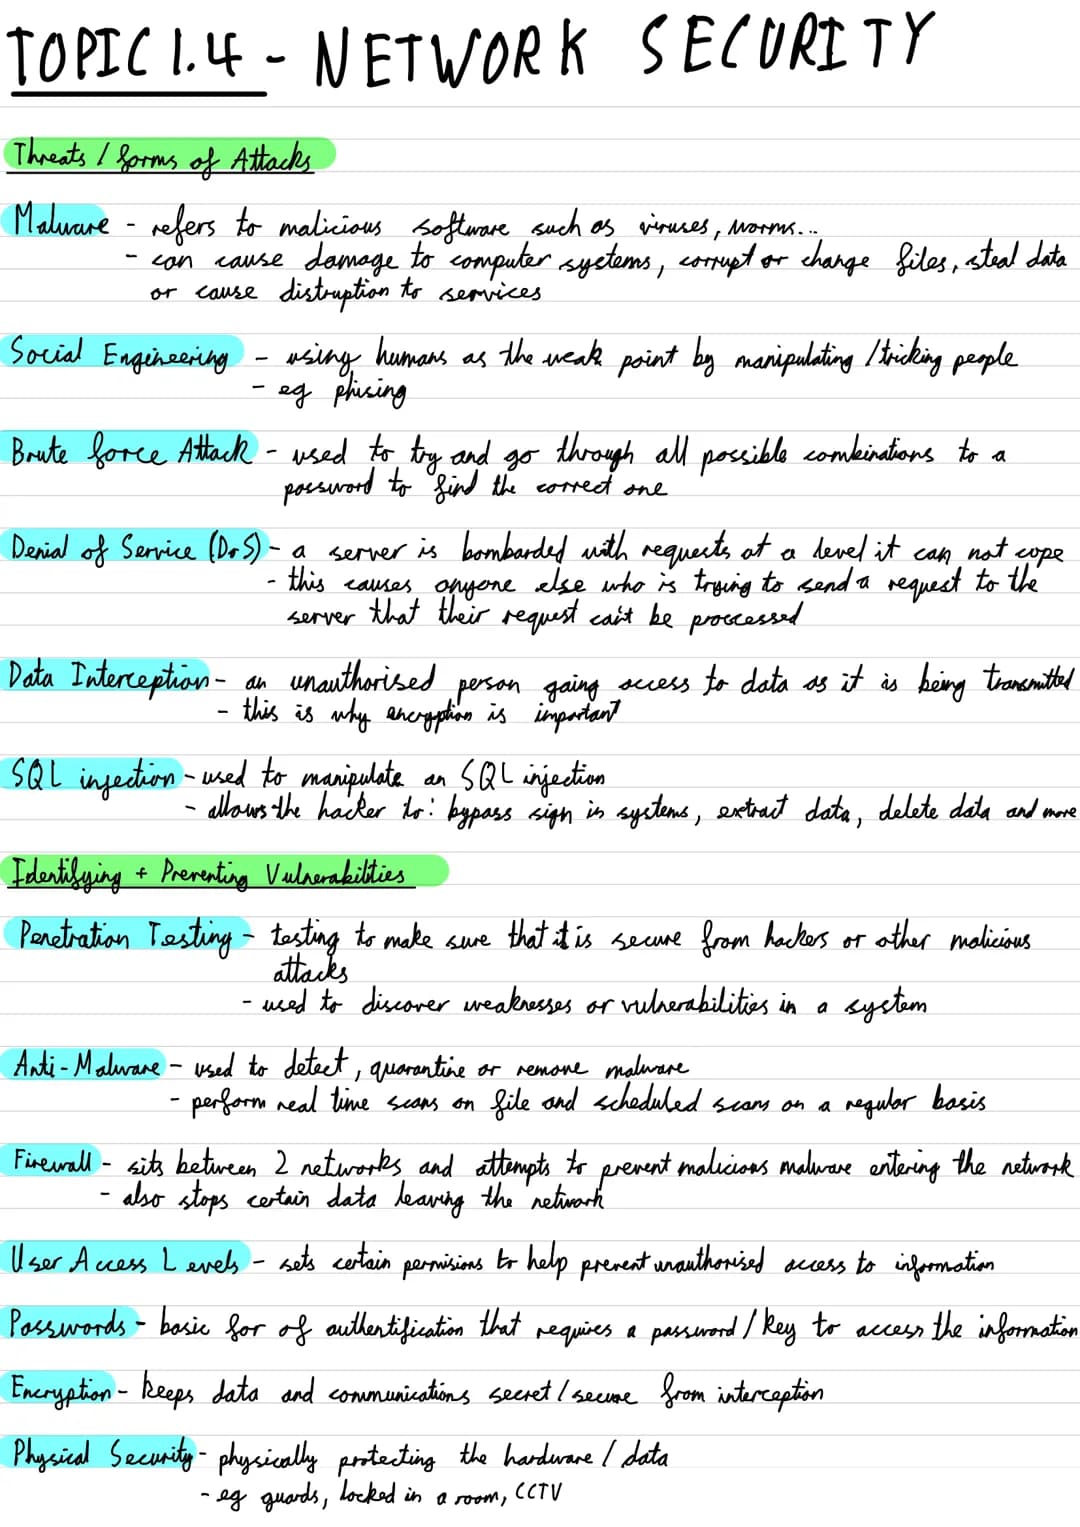 TOPIC 1.4 - NETWORK SECURITY
Threats / forms of Attacks
Malware - refers to malicious software such as viruses, worms...
- can cause damage to computer systems, corrupt or change files, steal data
or cause distruption to services
Social Engineering - using humans as the weak point by manipulating / tricking people
- eg phising
Brute force Attack - used to try and go through all possible combinations to a
password to find the correct one
Denial of Service (DoS) - a server is bombarded with requests at a level it can not cope
- this causes anyone else who is trying to send a request to the
server that their request can't be proccessed
Data Interception - an unauthorised person gaing access to data as it is being transmitted
- this is why encryption is important
SQL injection - used to manipulate an SQL injection
- allows the hacker to: bypass sign in systems, extract data, delete data and more
Identifying + Preventing Vulnerabilities
Penetration Testing - testing to make sure that it is secure from hackers or other malicious
attacks
- used to discover weaknesses or vulnerabilities in a system
Anti-Malware - used to detect, quarantine or remove malware
- perform real time scans on file and scheduled scans on a regular basis
Firewall - sits between 2 networks and attempts to prevent malicious malware entering the network
- also stops certain data leaving the network
User Access Levels - sets certain permisions to help prevent unauthorised access to information
Passwords - basic for of authentification that requires a password / key to access the information
Encryption - keeps data and communications secret / secure from interception
Physical Security - physically protecting the hardware / data
- eg guards, locked in a room, CCTV